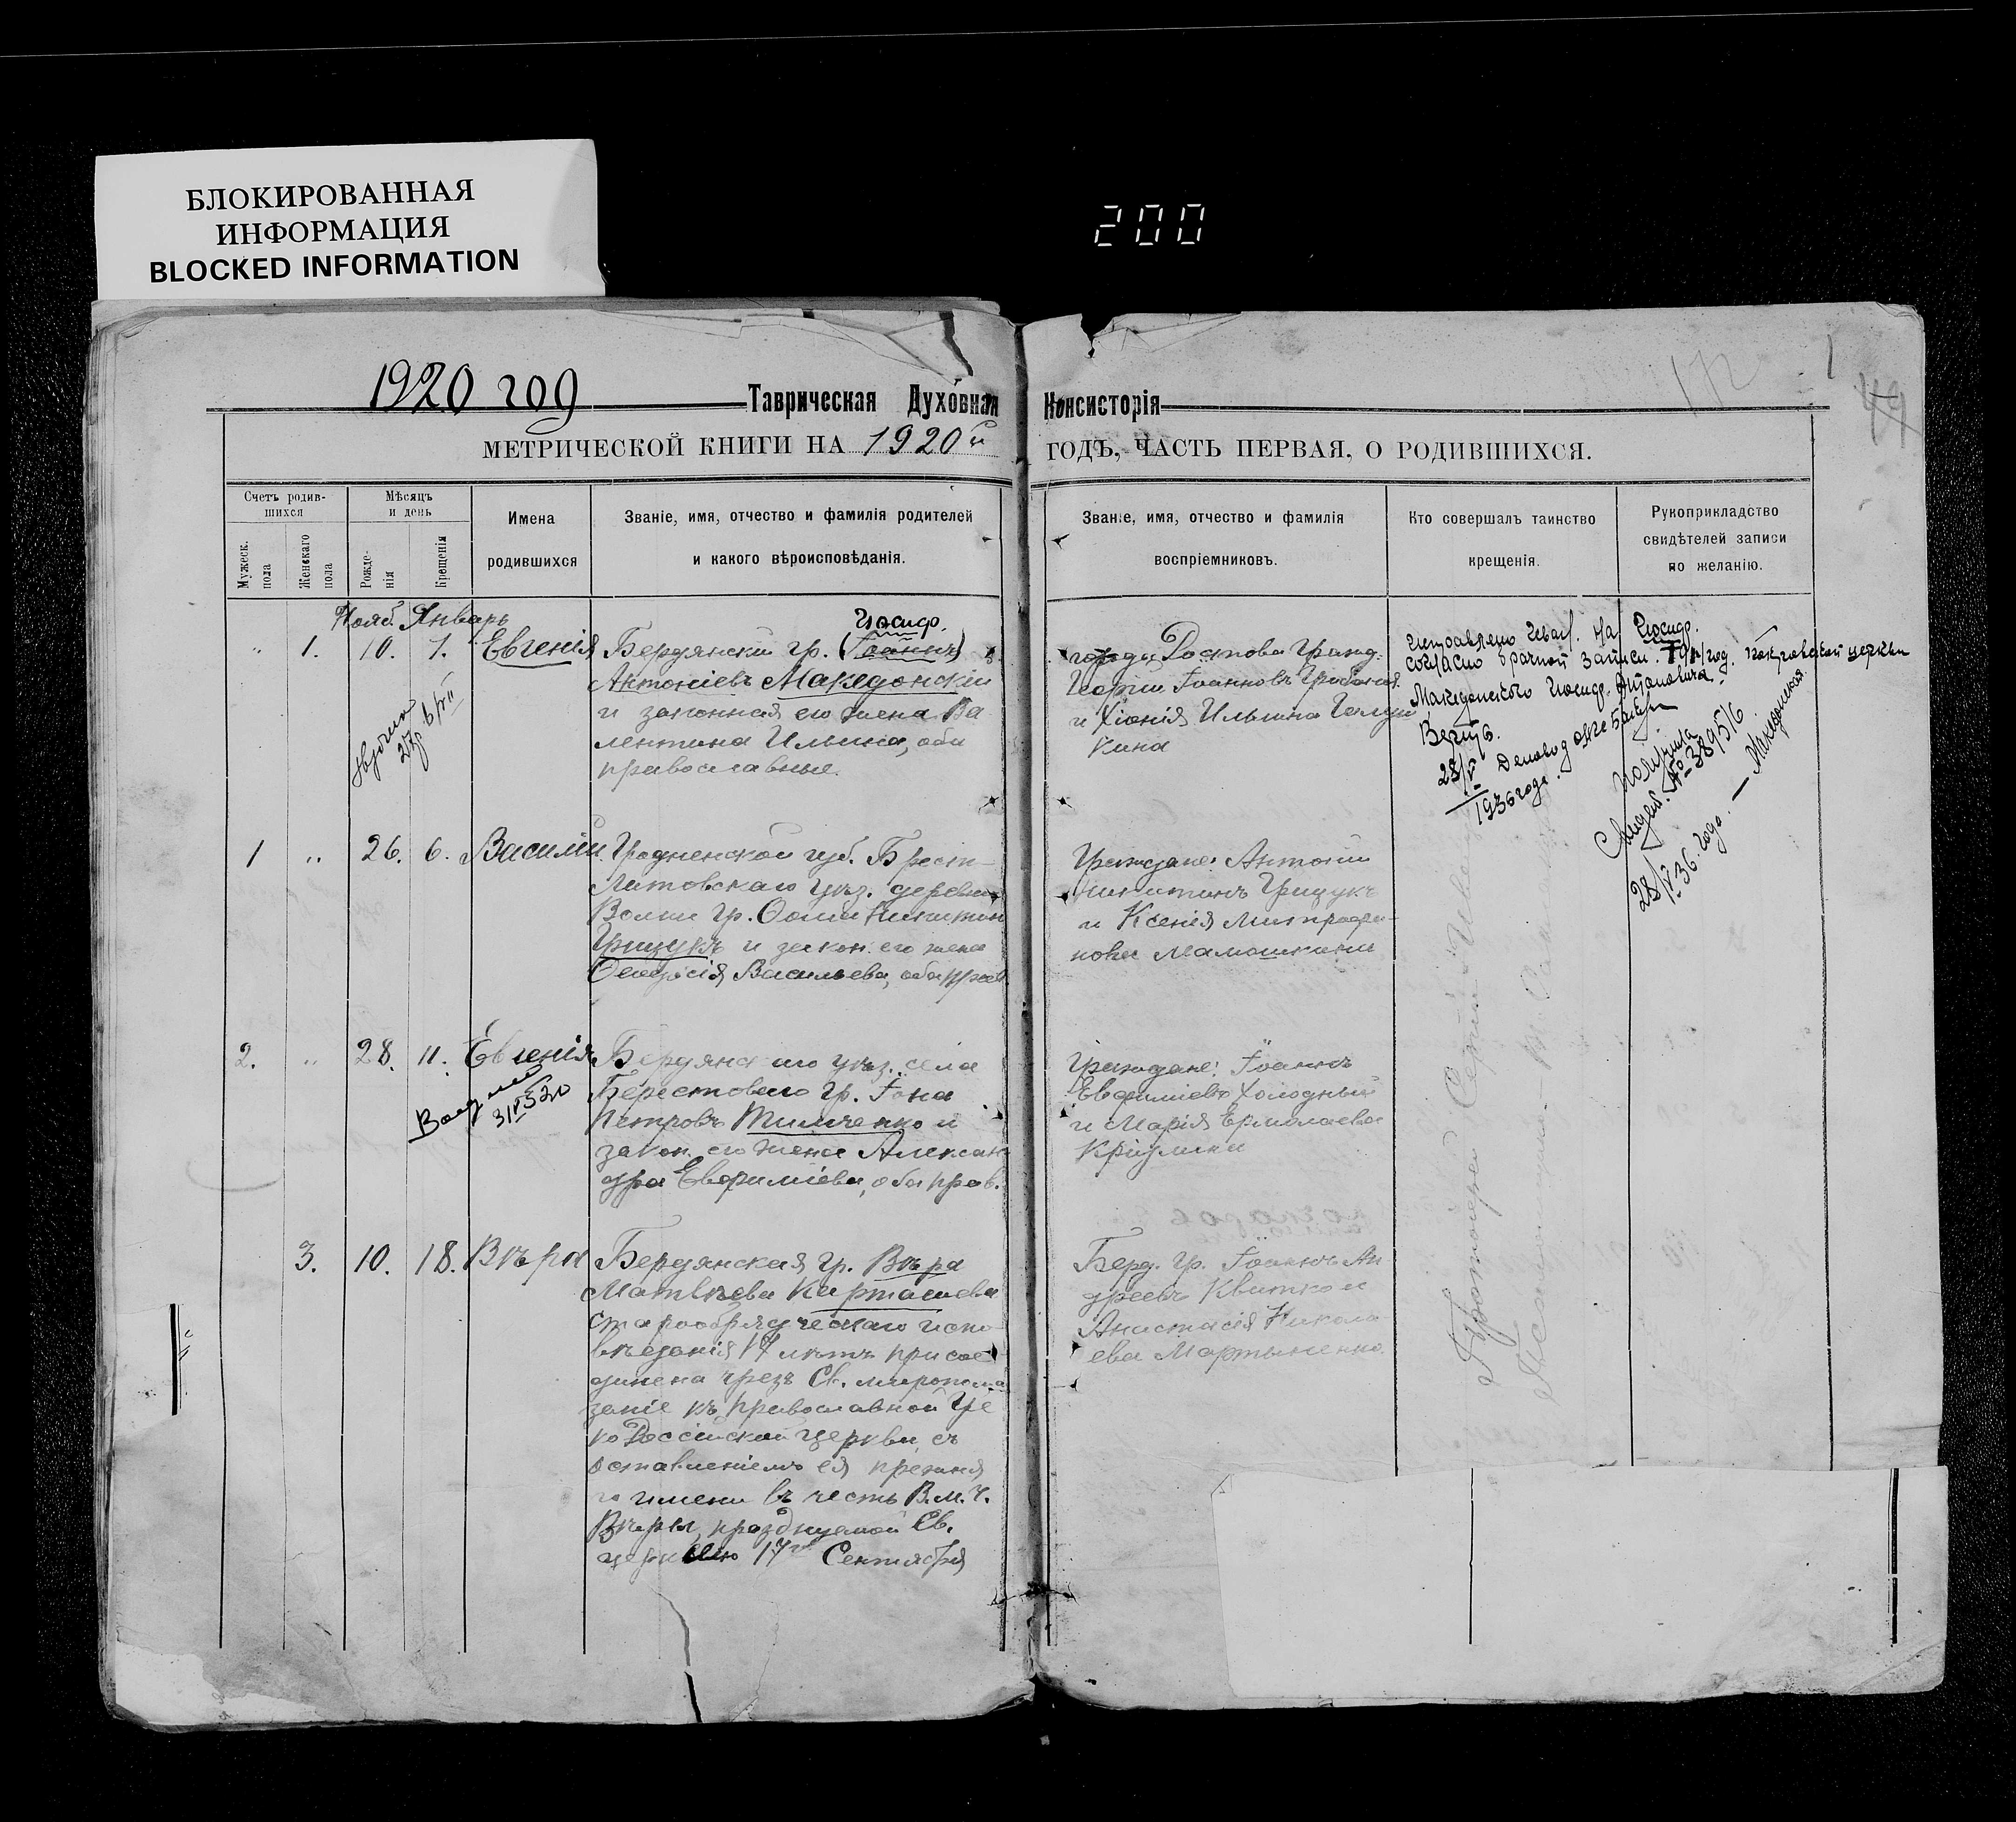 БЛОКИРОВАННАЯ
ИНФОРМАЦИЯ
BLOCKED INFORMATION
200
1920 год
Таврическая Духовная Консисторія
172
49
МЕТРИЧЕСКОЙ КНИГИ НА 1920й ГОДЪ, ЧАСТЬ ПЕРВАЯ, О РОДИВШИХСЯ.
Счетъ родив-
шихся
Мужеск.
пола
Женскаго
пола
Мѣсяцъ
и день
Рожде-
нія
Крещенія
Имена
родившихся
Званіе, имя, отчество и фамилія родителей
и какого вѣроисповѣданія.
Званіе, имя, отчество и фамилія
воспріемниковъ.
Кто совершалъ таинство
крещенія.
Рукоприкладство
свидѣтелей записи
по желанію.
Нояб. Январь
" 1. 10. 1. Евгенія
Іосиф.
Бердянскій гр. (Іоаннъ)
Антоніевъ Македонскій
и законная его жена Ва
лентина Ильина, оба
православные.
города Ростова Гражд.
Георгій Іоанновъ
и Хіонія Ильина
кина
Исправлено На Іосиф.
согласно брачной записи. год. Покровской церкви
Македонского Иосиф. Антоновича.
28/V
1936 года.
получила
Свидет. № 3895/6
28/V 36 года. — Македонская.
1 " 26. 6. Василій
Гродненской губ. Брест-
Литовскаго уѣз. деревни
Волки гр. Никитин
Грицукъ и закон. его жена
Васильева, оба прав.
Граждане: Антоній
Никитинъ Грицукъ
и Ксенія Митрофа-
нова Мамошкина
2. " 28. 11. Евгеній
31 V 520
Бердянскаго уѣз. села
Берестового гр. Іона
Петровъ Тимченко и
закон. его жена Алексан
дра Евфиміева, оба прав.
Граждане: Іоаннъ
Евфиміевъ Холодный
и Марія Ермолаева
3. 10. 18. Вѣра
Бердянская гр. Вѣра
Матвѣева Карташева
старообрядческаго испо
вѣданія 17 лѣтъ присое
динена чрезъ Св. миропома
заніе къ православной Гре
ко Россійской церкви, съ
оставленіемъ ея прежня
го имени въ честь В.М.Ч.
Вѣры, празднуемой Св.
церквью 17го Сентября
Берд. гр. Іоаннъ Ан
дреевъ Квитко и
Анастасія Никола
ева Мартыненко.
Протоіерей Сергій